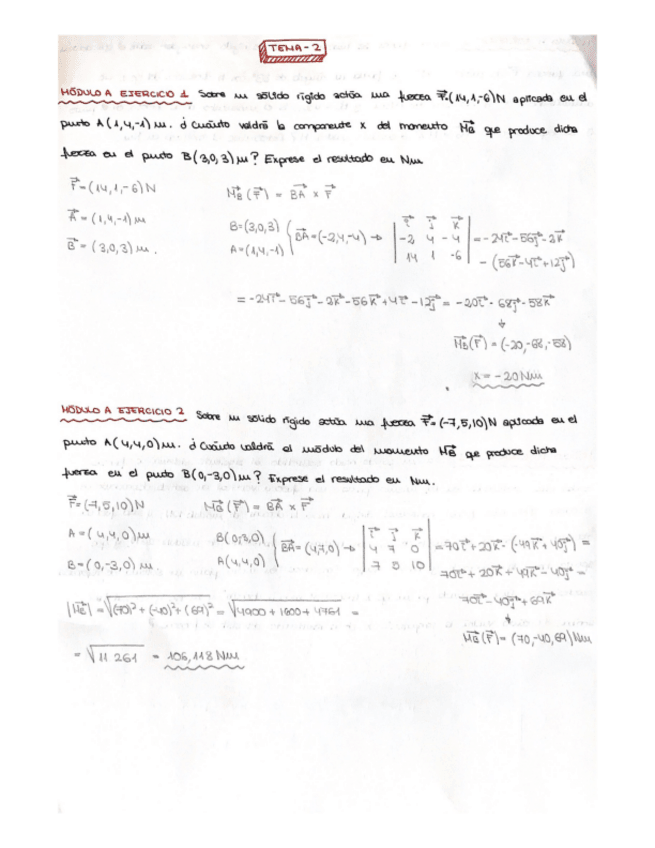 TEMA-2
MÓDULO A EJERCICIO 1 Sobre un sólido rígido actúa una fuerza F=(14,1,-6)N aplicada en el
punto A(1,4,-1)m. ¿Cuánto valdrá la componente x del momento MB que produce dicha
fuerza en el punto B(3,0,3)m? Exprese el resultado en Nm
F=(14,1,-6)N
MB(F) = BA x F
A=(1,4,-1)m
B=(3,0,3)m.
B=(3,0,3)
A=(1,4,-1)
BA=(-2,4,-4) →
i j k
-2 4 -4
14 1 -6
= -24i-56j-2k
- (56k-4i+12j)
= -24i-56j-2k-56k+4i-12j = -20i-68j-58k
↓
MB(F) = (-20,-68,-58)
x = -20Nm
MÓDULO A EJERCICIO 2 Sobre un sólido rígido actúa una fuerza F=(-7,5,10)N aplicada en el
punto A(4,4,0)m. ¿Cuánto valdrá el módulo del momento MB que produce dicha
fuerza en el punto B(0,-3,0)m? Exprese el resultado en Nm.
F=(-7,5,10)N
MB(F) = BA x F
A=(4,4,0)m
B=(0,-3,0)m
B(0,-3,0)
A(4,4,0)
BA=(4,7,0) →
i j k
4 7 0
7 5 10
=70i+20k-(-49k+40j) =
70i+20k+49k-40j =
70i-40j+69k
↓
MB(F)=(70,-40,69)Nm
|MB| = √(70)²+(-40)²+(69)² = √4900+1600+4761 =
= √11 261 = 106,118Nm